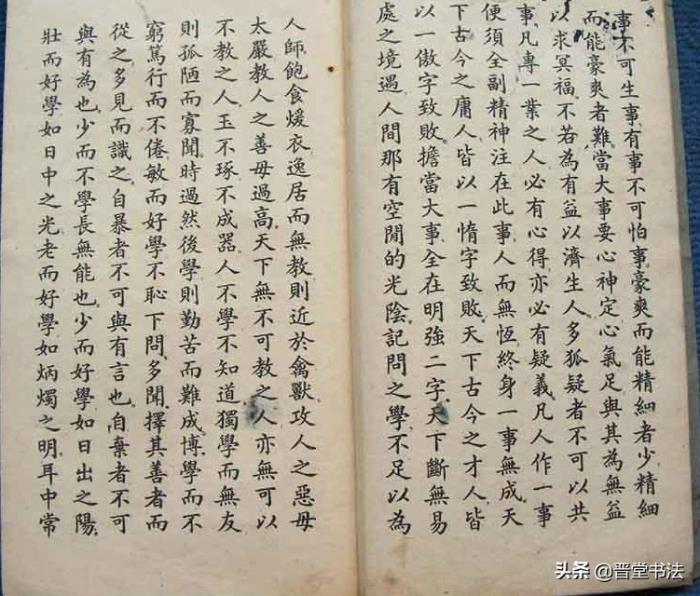 事不可生事有事不可怕事豪爽而能精細者少精細
而能豪爽者難當大事要心神定心氣足與其為無益
以求冥福不若為有益以濟生人多狐疑者不可以共
事凡專一業之人必有心得亦必有疑義凡人作一事
便須全副精神注在此事人而無恆終身一事無成天
下古今之庸人皆以一惰字致敗天下古今之才人皆
以一傲字致敗擔當大事全在明強二字天下斷無易
處之境遇人間那有空閒的光陰記問之學不足以為
人師飽食煖衣逸居而無教則近於禽獸攻人之惡毋
太嚴教人之善毋過高天下無不可教之人亦無可以
不教之人玉不琢不成器人不學不知道獨學而無友
則孤陋而寡聞時過然後學則勤苦而難成博學而不
窮篤行而不倦敏而好學不恥下問多聞擇其善者而
從之多見而識之自暴者不可與有言也自棄者不可
與有為也少而不學長無能也少而好學如日出之陽
壯而好學如日中之光老而好學如炳燭之明耳中常
头条 @晋堂书法